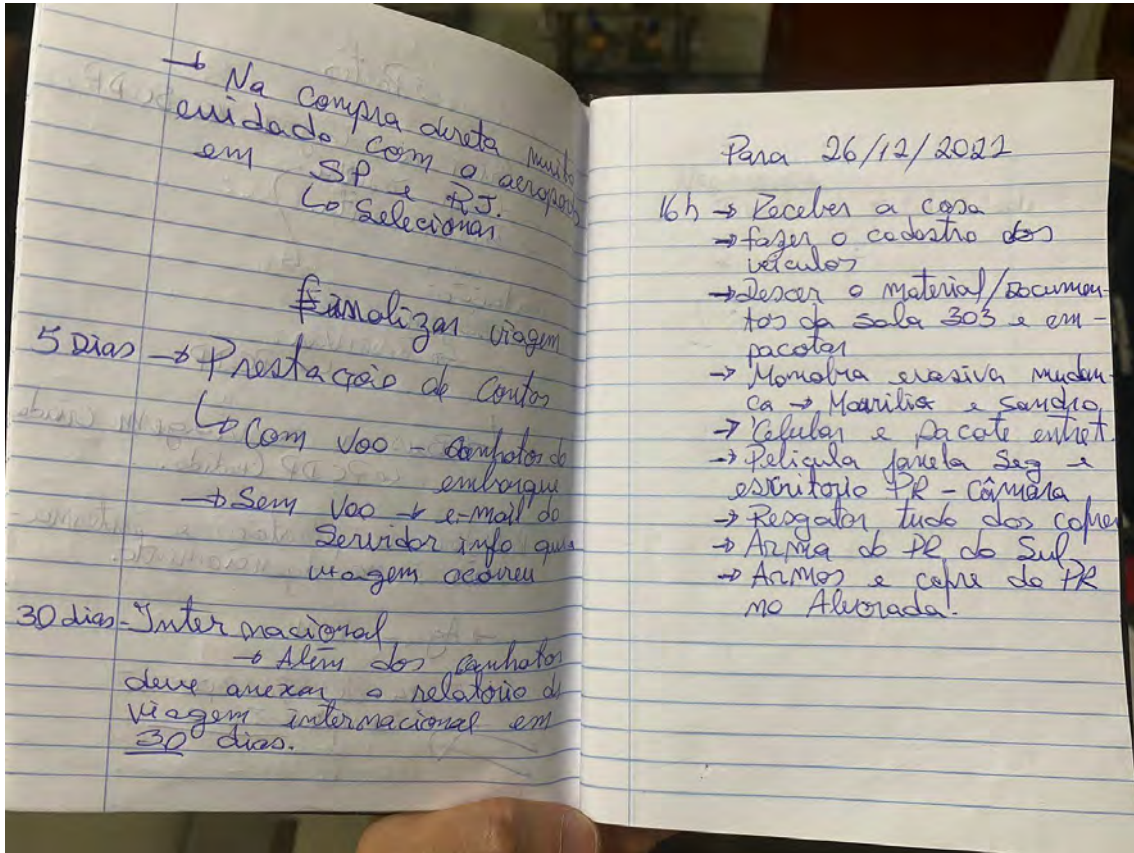 → Na compra direta muito
cuidado com o aeroporto
em SP e RJ.
↳ Selecionar
Finalizar viagem
5 Dias → Prestação de Contas
↳ Com voo - canhotos de
embarque
→ Sem voo → e-mail do
Servidor info que
viagem ocorreu
30 dias - Internacional
→ Além dos canhotos
deve anexar o relatório de
viagem internacional em
30 dias.
Para 26/12/2022
16h → Receber a casa
→ fazer o cadastro dos
veículos
→ Descer o material/Documen-
tos da sala 303 e em-
pacotar
→ Manobra evasiva mudan-
ça → Marilia e Sandro
→ Celular e pacote entret.
→ Película janela Seg e
escritório PR - Câmara
→ Resgatar tudo dos cofres
→ Arma do PR do Sul
→ Armas e cofre do PR
no Alvorada!